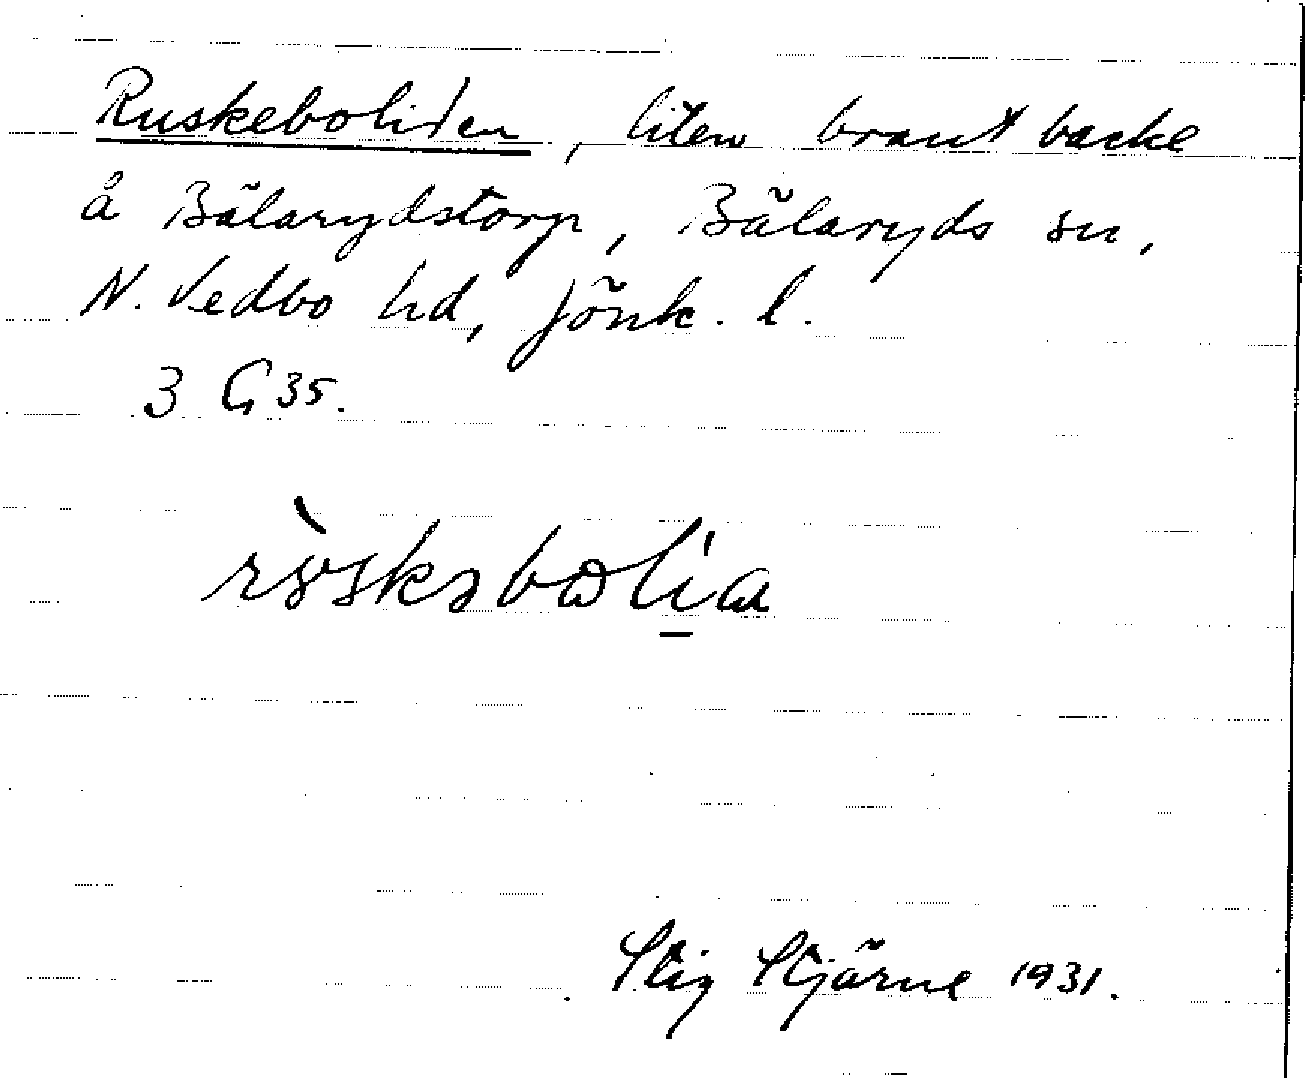 Ruskeboliden, liten brant backe
å Bälarydstorp, Bälaryds sn,
N. Vedbo hd, Jönk. l.
3 G 35.
Stig Stjärne 1931.